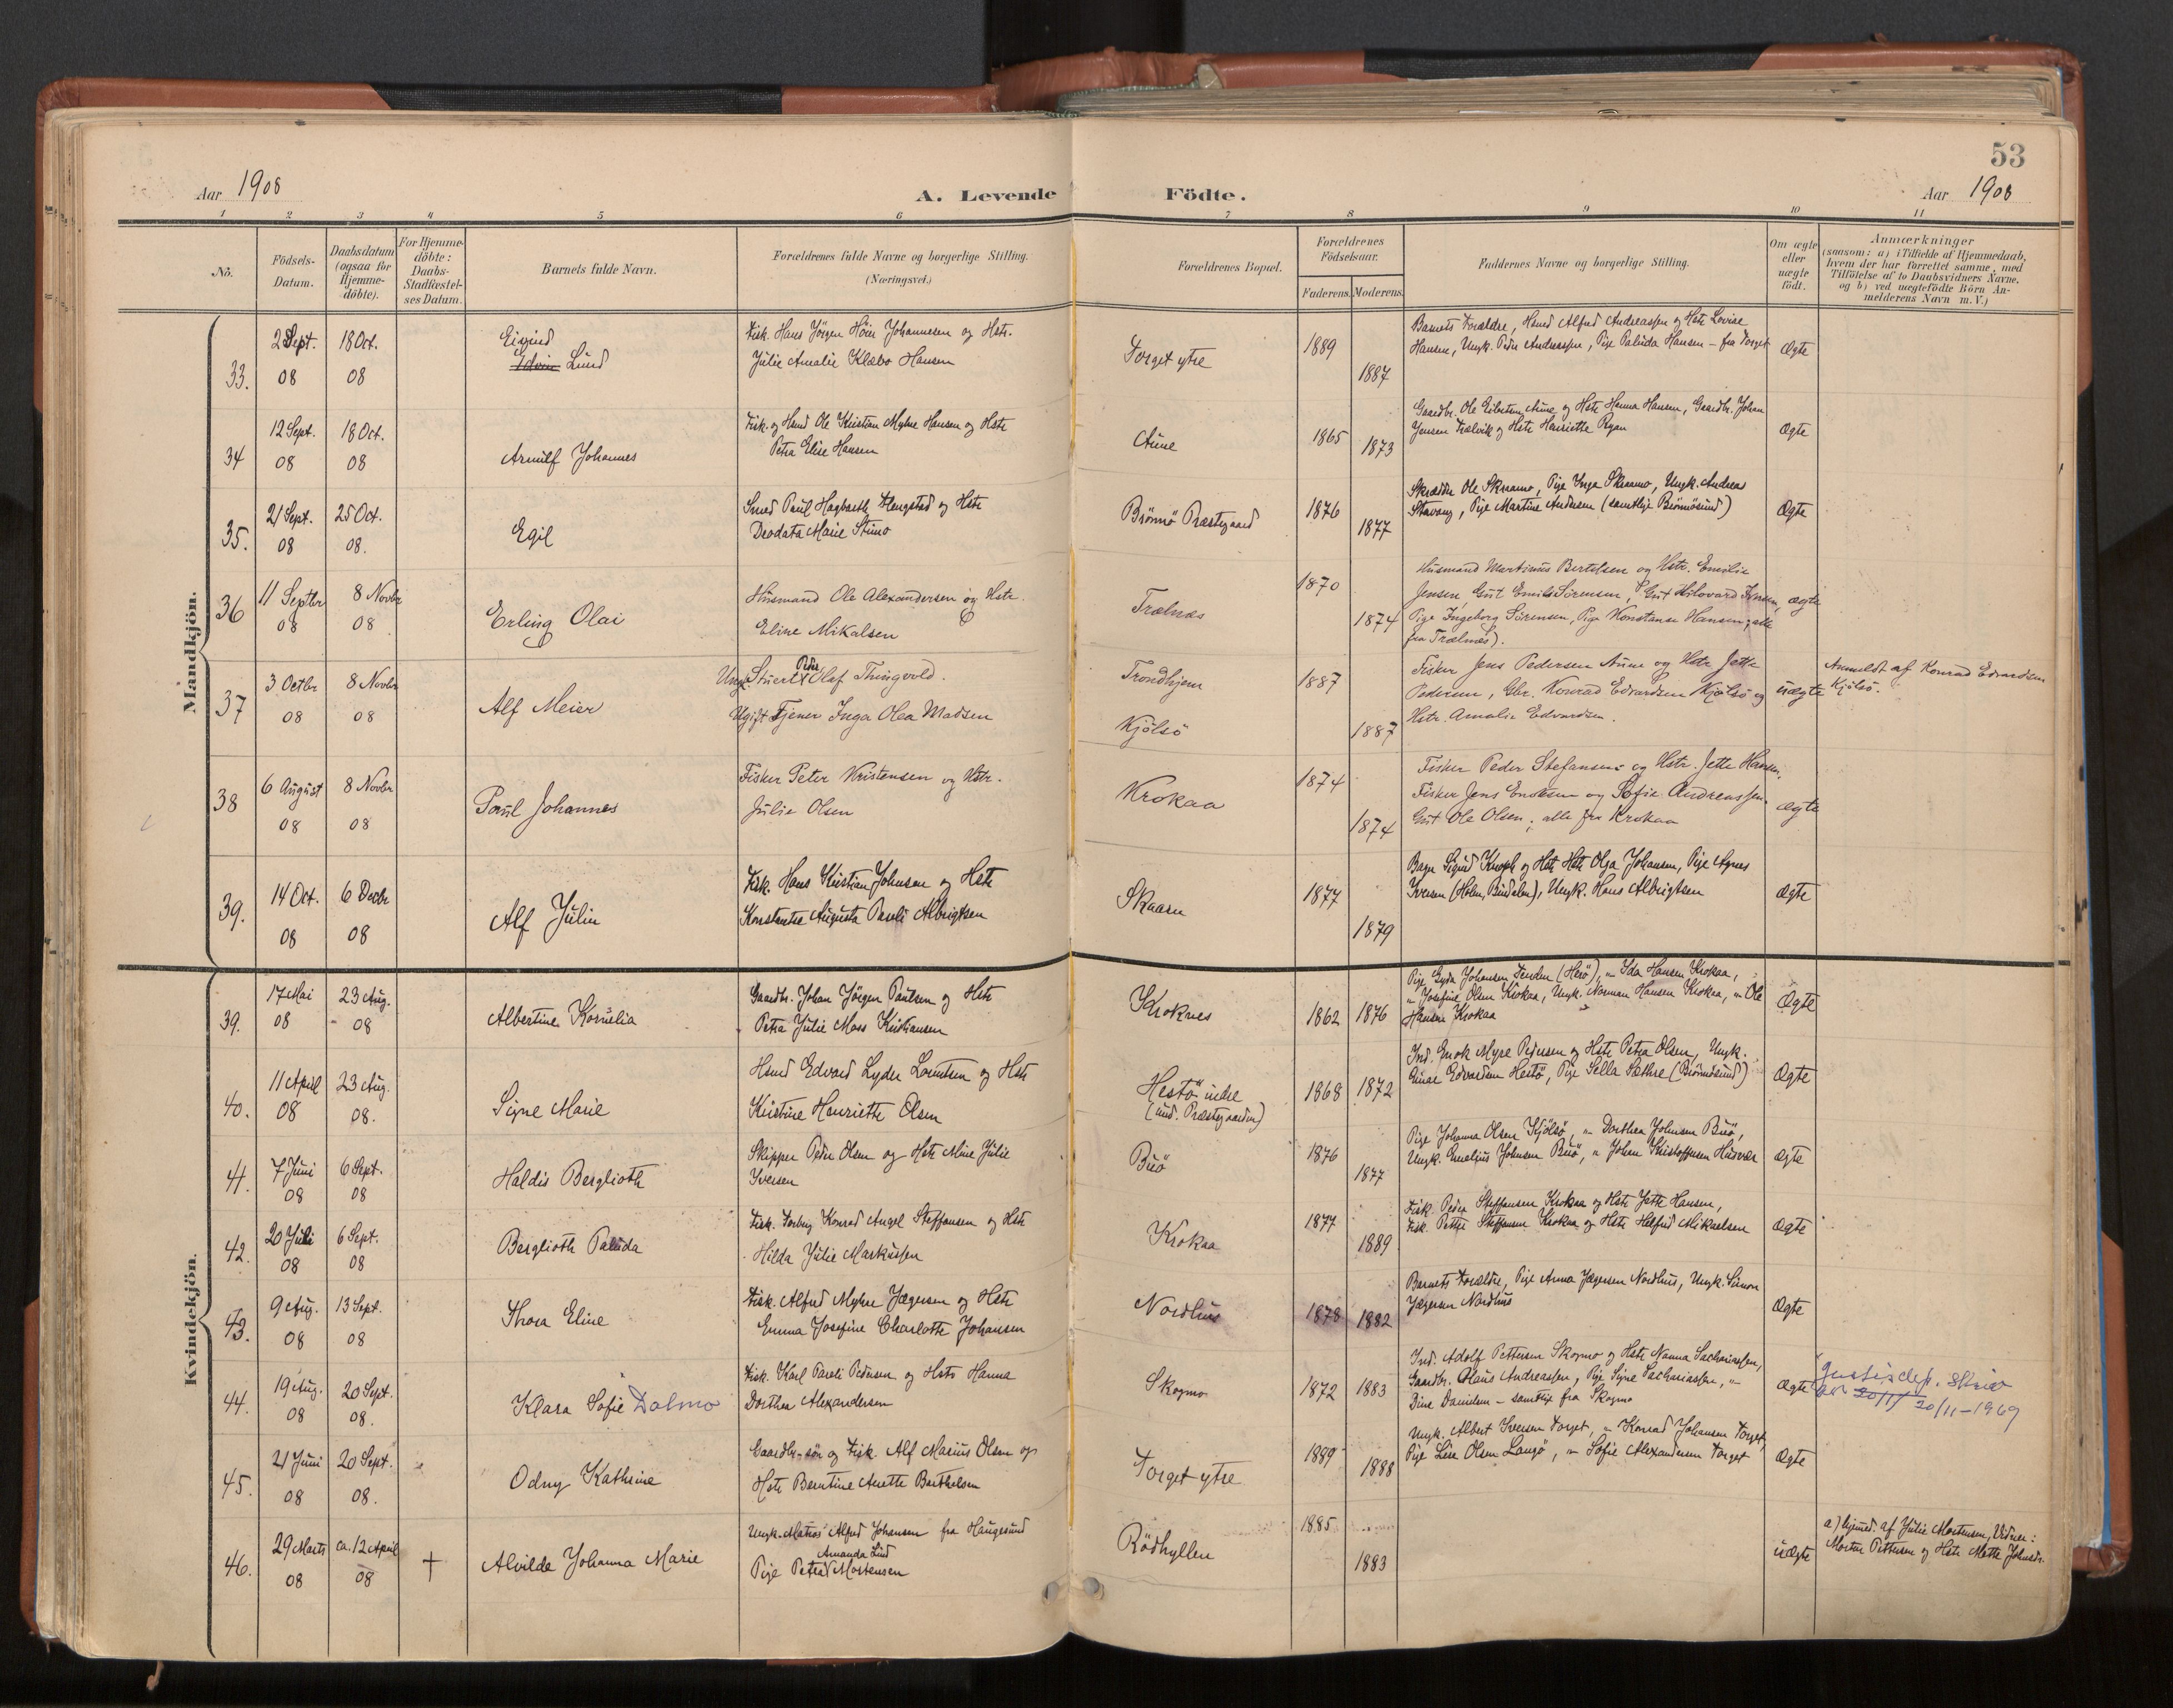 53
Aar 1908
A. Levende Födte.
Aar 1908
1 2 3 4 5 6 7 8 9 10 11
No.
Födsels-
Datum.
Daabsdatum
(ogsaa for
Hjemme-
döbte).
For Hjemme-
döbte:
Daabs-
Stadfæstel-
ses Datum.
Barnets fulde Navn.
Forældrenes fulde Navne og borgerlige Stilling.
(Næringsvei.)
Forældrenes Bopæl.
Forældrenes
Födselsaar.
Faderens. Moderens.
Faddernes Navne og borgerlige Stilling.
Om ægte
eller
uægte
födt.
Anmærkninger
(saasom: a) i Tilfælde af Hjemmedaab,
hvem der har forrettet samme, med
Tilföielse af to Daabsvidners Navne,
og b) ved uægtefödte Börn An-
melderens Navn m. V.)
Mandkjön.
33.
2 Sept.
08
18 Oct.
08
Eivind
Edvin Lund
Fisk. Hans Jörgen Höier Johannesen og Hstr.
Julie Amalie Klæbo Hansen
Torget ytre
1889
1887
Barnets Forældre, Hsmd Alfred Andreassen og Hstr Lovise
Hansen, Ungk. Peder Andreassen, Pige Palida Hansen – fra Torget
Ægte
34
12 Sept.
08
18 Oct.
08
Arnulf Johannes
Fisk. og Hsmd Ole Kristian Myhre Hansen og Hstr
Petra Elise Hansen
Aune
1865
1873
Gaardbr. Ole Eilertsen Aune og Hstr Hanna Hansen, Gaardb. Johan
Jensen Trælvik og Hstr Henriette Ryan
Ægte
35.
21 Sept.
08
25 Oct.
08.
Egil
Smed Paul Hagbarth Hengstad og Hstr
Deodata Marie Stimo
Brönnö Præstegaard
1876
1877
Skrædder Ole Skraamo, Pige Inga Skraamo, Ungk. Andreas
Stavang, Pige Martine Andersen (samtlige Brönnösund)
Ægte
36
11 Septbr
08
8 Novbr
08
Erling Olai
Husmand Ole Alexandersen og Hstr.
Eline Mikalsen
Trælnæs
1870
1874
Husmand Martinus Bertelsen og Hstr. Emilie
Jensen, Gut Emil Sörensen, Gut Hilovard Iversen,
Pige Ingeborg Sörensen, Pige Konstanse Hansen; alle
fra Trælnes).
ægte
37
3 Octbr
08
8 Novbr
08
Alf Meier
Ungk. Stuert Peder Olaf Thingvold.
Ugift Tjener Inga Olea Madsen
Trondhjem
Kjölsö
1887
1887
Fisker Jens Pedersen Aune og Hstr Jette
Pedersen, Gbr. Konrad Edvardsen Kjölsö og
Hstr. Amalie Edvardsen.
uægte
Anmeldt af Konrad Edvardsen
Kjölsö.
38
6 August
08
8 Novbr
08
Paul Johannes
Fisker Peter Kristensen og Hstr.
Julie Olsen
Krokaa
1874
1874
Fisker Peder Stefansen og Hstr. Jette Hansen,
Fisker Jens Enoksen og Sofie Andreassen,
Gut Ole Olsen; alle fra Krokaa
ægte
39.
14 Oct.
08
6 Decbr
08
Alf Julin
Fisk. Hans Kristian Johnsen og Hstr
Konstantse Augusta Pareli Albrigtsen
Skaaren
1877
1879
Bager Sigurd Knoph og Hstr Olga Johansen, Pige Agnes
Iversen (Holm, Bindalen), Ungk. Hans Albrigtsen
Ægte
Kvindekjön.
39.
17 Mai
08
23 Aug.
08
Albertine Kornelia
Gaardbr. Johan Jörgen Paulsen og Hstr
Petra Julie Moss Kristiansen
Kroknes
1862
1876
Pige Gyda Johansen Tenden (Herö), „ Ida Hansen Krokaa,
„ Josefine Olsen Krokaa, Ungk. Norman Hansen Krokaa, „ Ole
Hansen Krokaa
Ægte
40.
11 April
08
23 Aug.
08.
Signe Marie
Hsmd Edvard Lyder Lorentsen og Hstr
Kristine Henriette Olsen
Hestö indre
(und. Præstegaarden)
1868
1872
Ind. Enok Myre Pedersen og Hstr Petra Olsen, Ungk.
Einar Edvardsen Hestö, Pige Sella Sæthre (Brönnösund)
Ægte
41.
7 Juni
08
6 Sept.
08
Haldis Berglioth
Skipper Peder Olsen og Hstr Mine Julie
Iversen
Buö
1876
1877
Pige Johanna Olsen Kjölsö, „ Dorthea Johnsen Buö,
Ungk. Cornelius Johnsen Buö, „ Johan Kristoffersen Husvær
Ægte
42.
20 Juli
08
6 Sept.
08
Berglioth Palida
Fisk. Torberg Konrad Angel Steffansen og Hstr
Hilda Julie Markussen
Krokaa
1877
1889
Fisk. Peder Steffansen Krokaa og Hstr Jette Hansen,
Fisk. Petter Steffansen Krokaa og Hstr Helfred Mikaelsen
Ægte
43.
9 Aug.
08
13 Sept.
08
Thora Eline
Fisk. Alfred Myhre Jægersen og Hstr
Emma Josefine Charlotte Johansen
Nordhus
1878
1882
Barnets Forældre, Pige Anna Jægersen Nordhus, Ungk. Simon
Jægersen Nordhus
Ægte
44.
19 Aug.
08
20 Sept.
08.
Klara Sofie Dalmo
Fisk. Karl Pareli Pedersen og Hstr Hanna
Dorthea Alexandersen
Skogmo
1872
1883
Ind. Adolf Pettersen Skogmo og Hstr Nanna Sachariassen,
Gaardbr. Klaus Andreassen, Pige Signe Sachariassen, „
Dine Danielsen – samtlige fra Skogmo
Ægte
Justisdep. skriv
av 20/11 20/11-1969
45.
21 Juni
08
20 Sept.
08.
Odny Kathrine
Gaardbr.-sön og Fisk. Alf Marius Olsen og
Hstr Berntine Anette Barthelsen
Torget ytre
1889
1888
Ungk. Albert Iversen Torget, „ Konrad Johansen Torget,
Pige Lise Olsen Langö, „ Sofie Alexandersen Torget
Ægte
46.
29 Marts
08
ca. 12 April
08
†
Alvilde Johanna Marie
Ungk. Matros Alfred Johansen fra Haugesund
Amanda Lind
Pige Petra Mortensen
Rödhyllen
1885
1883
uægte
a) hjemmed. af Julie Mortensen, Vidner:
Morten Pettersen og Hstr Mette Johnsdr.